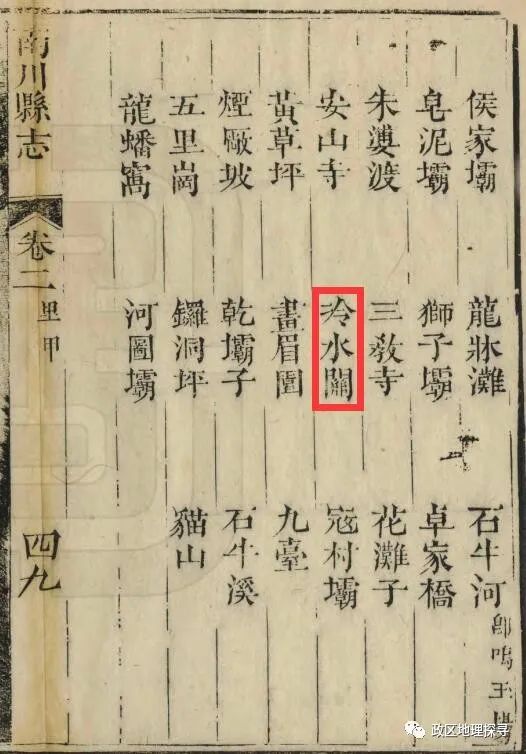 侯家壩 龍牀灘 石牛河 即鳴玉場
皂泥壩 獅子壩 卓家橋
朱婆渡 三敎寺 花灘子
安山寺 冷水關 冦村壩
黃草坪 畫眉園 九臺
煙坡 乾壩子 石牛溪
五里崗 鑼洞坪 貓山
龍蟠窩 河圖壩
南川縣志 卷二 里甲 四九
政区地理探寻